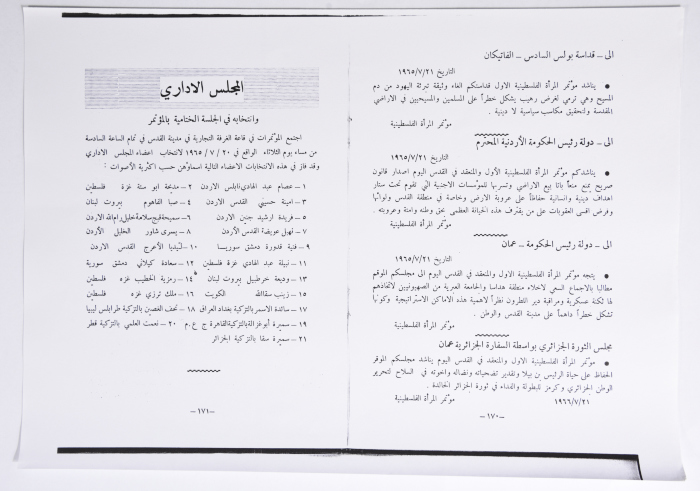 الى – قداسة بولس السادس – الفاتيكان
التاريخ ١٩٦٥/٧/٢١
● يناشد مؤتمر المرأة الفلسطينية الاول قداستكم الغاء وثيقة تبرئة اليهود من دم
المسيح وهي ترمي لغرض رهيب يشكل خطراً على المسلمين والمسيحيين في الاراضي
المقدسة ولتحقيق مكاسب سياسية لا دينية .
مؤتمر المرأة الفلسطينية
الى – دولة رئيس الحكومة الأردنية المحترم
التاريخ ١٩٦٥/٧/٢١
● يناشدكم مؤتمر المرأة الفلسطينية الأول والمنعقد في القدس اليوم اصدار قانون
صريح يمنع منعاً باتا بيع الاراضي وتسربها للمؤسسات الاجنبية التي تقوم تحت ستار
اهداف دينية وانسانية حفاظاً على عروبة الارض وخاصة في منطقة القدس ولوائها
وفرض اقسى العقوبات على من يقترف هذه الخيانة العظمى بحق وطنه وامته وعروبته .
مؤتمر المرأة الفلسطينية
الى – دولة رئيس الحكومة – عمان
التاريخ ١٩٦٥/٧/٢١
● يتجه مؤتمر المرأة الفلسطينية الاول والمنعقد في القدس اليوم الى مجلسكم الموقر
مطالبا بالاجماع السعي لاخلاء منطقة هداسا والجامعة العبرية من الصهيونيين لاتخاذهم
لها ثكنة عسكرية ومراقبة دير اللطرون نظراً لاهمية هذه الاماكن الاستراتيجية وكونها
تشكل خطراً داهماً على مدينة القدس والوطن .
مؤتمر المرأة الفلسطينية
مجلس الثورة الجزائري بواسطة السفارة الجزائرية عمان
● مؤتمر المرأة الفلسطينية الاول والمنعقد في القدس اليوم يناشد مجلسكم الموقر
الحفاظ على حياة الرئيس بن بيلا وتقدير تضحياته ونضاله واخوته في السلاح لتحرير
الوطن الجزائري وكرمز للبطولة والفداء في ثورة الجزائر الخالدة .
١٩٦٦/٧/٢١ مؤتمر المرأة الفلسطينية
–١٧٠–
المجلس الاداري
وانتخابه في الجلسة الختامية بالمؤتمر
اجتمع المؤتمرات في قاعة الغرفة التجارية في مدينة القدس في تمام الساعة السادسة
من مساء يوم الثلاثاء الواقع في ٢٠ / ٧ / ١٩٦٥ لانتخاب اعضاء المجلس الاداري
وقد فاز في هذه الانتخابات الاعضاء التالية اسماؤهن حسب اكثرية الأصوات :
١ – عصام عبد الهادي نابلس الاردن ٢ – مديحة ابو ستة غزة فلسطين
٣ – امينة حسيني القدس الاردن ٤ – صبا الفاهوم بيروت لبنان
٥ – فريدة ارشيد جنين الاردن ٦ – سميحة سلامة خليل رام الله الاردن
٧ – نهيل عويضة القدس الأردن ٨ – يسرى شاور الخليل الأردن
٩ – فتية قدورة دمشق سوريا ١٠ – ليديا الأعرج القدس الاردن
١١ – نبيلة عبد الهادي غزة فلسطين ١٢ – سعادة كيلاني دمشق سورية
١٣ – وديعة خرطبيل بيروت لبنان ١٤ – رمزية الخطيب غزه فلسطين
١٥ – زينب ساق الله الكويت ١٦ – ملك ترزي غزه فلسطين
١٧ – سائدة الاسمر بالتزكية بغداد العراق ١٨ – تحف الغصين بالتزكية طرابلس ليبيا
١٩ – سميرة أبو غزالة بالتزكية القاهرة ج ع م ٢٠ – نعمت العلمي بالتزكية قطر
٢١ – سميرة سقا بالتزكية الجزائر
–١٧١–